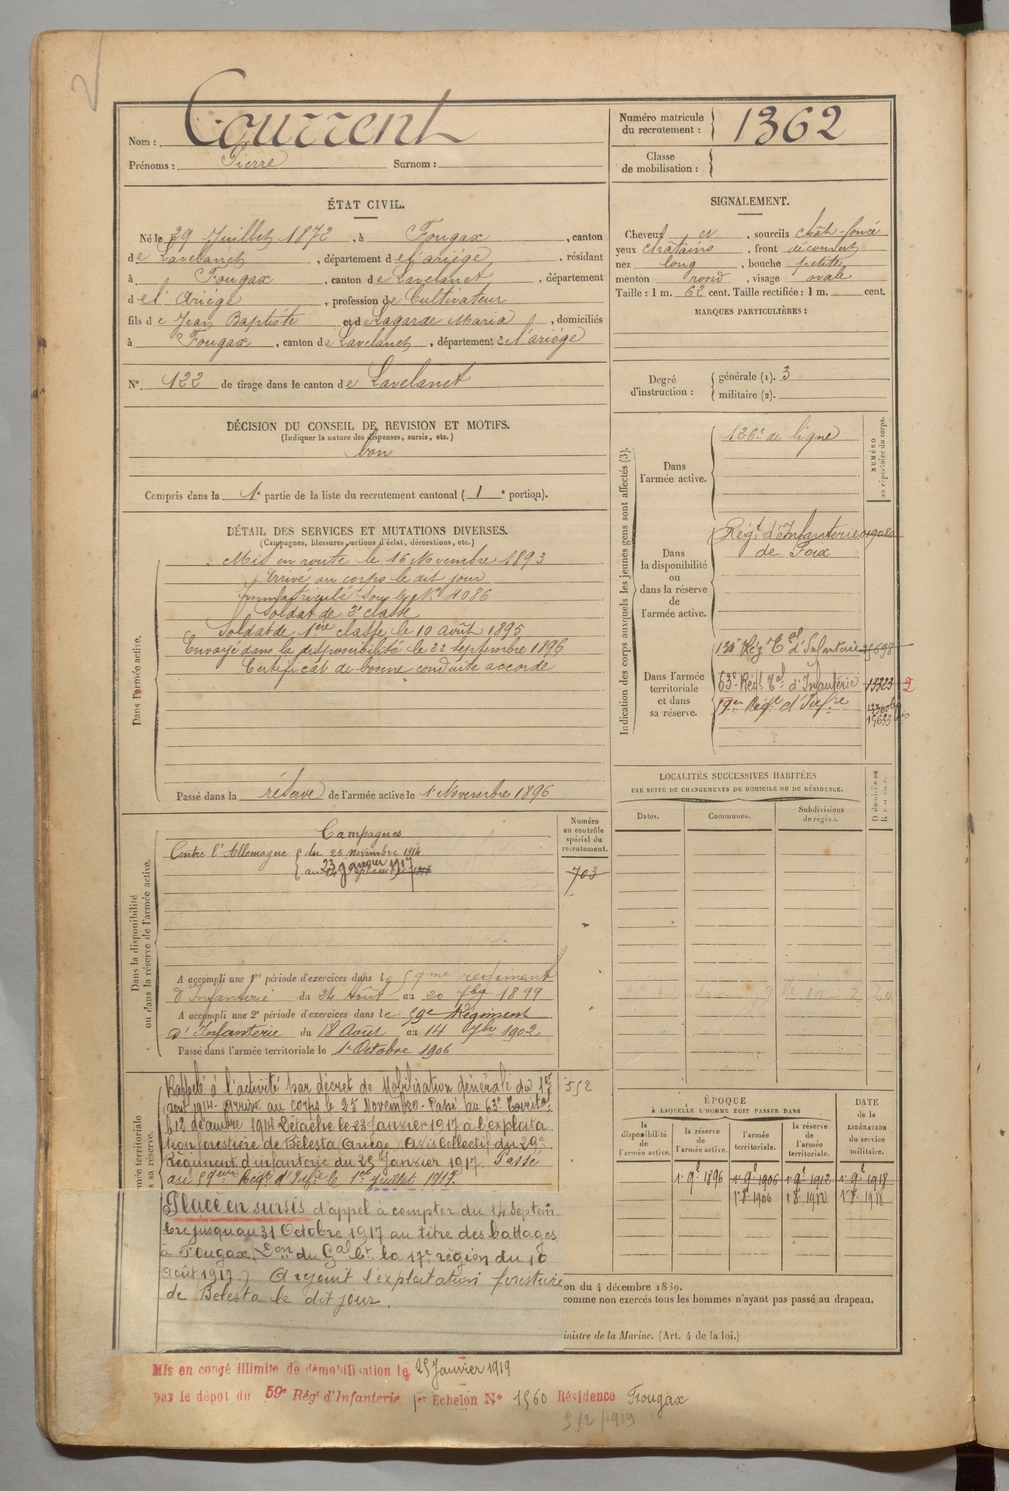 Nom : Courrent
Prénoms : Pierre Surnom :
Numéro matricule du recrutement : 1362
Classe de mobilisation :
ÉTAT CIVIL.
Né le 29 Juillet 1872, à Fougax, canton
de Lavelanet, département de l'ariége, résidant
à Fougax, canton de Lavelanet, département
de l'Ariége, profession de Cultivateur
fils de Jean Baptiste et de Lagarde Maria, domiciliés
à Fougax, canton de Lavelanet, département de l'ariége
N° 122 de tirage dans le canton de Lavelanet
SIGNALEMENT.
Cheveux et, sourcils chât-foncé
yeux chatains, front découvert
nez long, bouche petite
menton rond, visage ovale
Taille : 1 m. 62 cent. Taille rectifiée : 1 m. cent.
MARQUES PARTICULIÈRES :
Degré d'instruction : générale (1). 3
militaire (2).
DÉCISION DU CONSEIL DE REVISION ET MOTIFS.
(Indiquer la nature des dispenses, sursis, etc.)
bon
Compris dans la 1e partie de la liste du recrutement cantonal (1e portion).
DÉTAIL DES SERVICES ET MUTATIONS DIVERSES.
(Campagnes, blessures, actions d'éclat, décorations, etc.)
Dans l'armée active.
Mis en route le 16 Novembre 1893
Arrivé au corps le dit jour
Immatriculé sous le N° 4086
Soldat de 2e classe
Soldat de 1ère classe le 10 août 1895
Envoyé dans la disponibilité le 22 septembre 1896
Certificat de bonne conduite accordé
Passé dans la réserve de l'armée active le 1 Novembre 1896
Indication des corps auxquels les jeunes gens sont affectés (3).
NUMÉRO au répertoire du corps.
Dans l'armée active.
126e de ligne
Dans la disponibilité ou dans la réserve de l'armée active.
Régt d'Infanterie
de Foix
Dans l'armée territoriale et dans sa réserve.
63e Régt Tal d'Infanterie 13323 2
59em Régt d'Infre
15633
LOCALITÉS SUCCESSIVES HABITÉES
PAR SUITE DE CHANGEMENTS DE DOMICILE OU DE RÉSIDENCE.
Dates. Communes. Subdivisions de région.
Dans la disponibilité ou dans la réserve de l'armée active.
Numéro au contrôle spécial du recrutement.
703
Campagnes
Contre l'Allemagne du 25 novembre 1914
au 23 janvier 1917
A accompli une 1re période d'exercices dans le 59me regiment
d'Infanterie du 24 Août au 20 7bre 1899
A accompli une 2e période d'exercices dans le 59e Régiment
d'Infanterie du 18 Août au 14 7bre 1902
Passé dans l'armée territoriale le 1er Octobre 1906
552
Rappelé à l'activité par décret de Mobilisation générale du 1er
aout 1914 - Arrivé au corps le 25 Novembre - Passé au 63e Territal
le 12 décembre 1914 Détaché le 23 Janvier 1917 à l'exploita
tion forestière de Bélesta (Ariège) Avis Collectif du 29e
Régiment d'infanterie du 25 Janvier 1917. Passé
au 59ème Régt d'Infie le 1er Juillet 1917.
Placé en sursis d'appel a compter du 14 Septem
bre jusqu'au 31 Octobre 1917 au titre des battages
à Fougax (Don du Gal Ct la 17e région du 10
août 1917) A rejoint l'exploitation forestiere
de Bélesta le dit jour.
ÉPOQUE
À LAQUELLE L'HOMME DOIT PASSER DANS
la disponibilité de l'armée active.
la réserve de l'armée active.
l'armée territoriale.
la réserve de l'armée territoriale.
DATE de la LIBÉRATION du service militaire.
1 9e 1896 1 9e 1906 1 9e 1912 1 9e 1918
1 8 1906 1 8 1912 1 8 1918
on du 4 décembre 1889.
comme non exercés tous les hommes n'ayant pas passé au drapeau.
inistre de la Marine. (Art. 4 de la loi.)
Mis en congé illimité de démobilisation le 25 Janvier 1919
par le dépôt du 59e Régt d'Infanterie 1er Echelon N° 1560 Résidence Fougax
5/2/1919